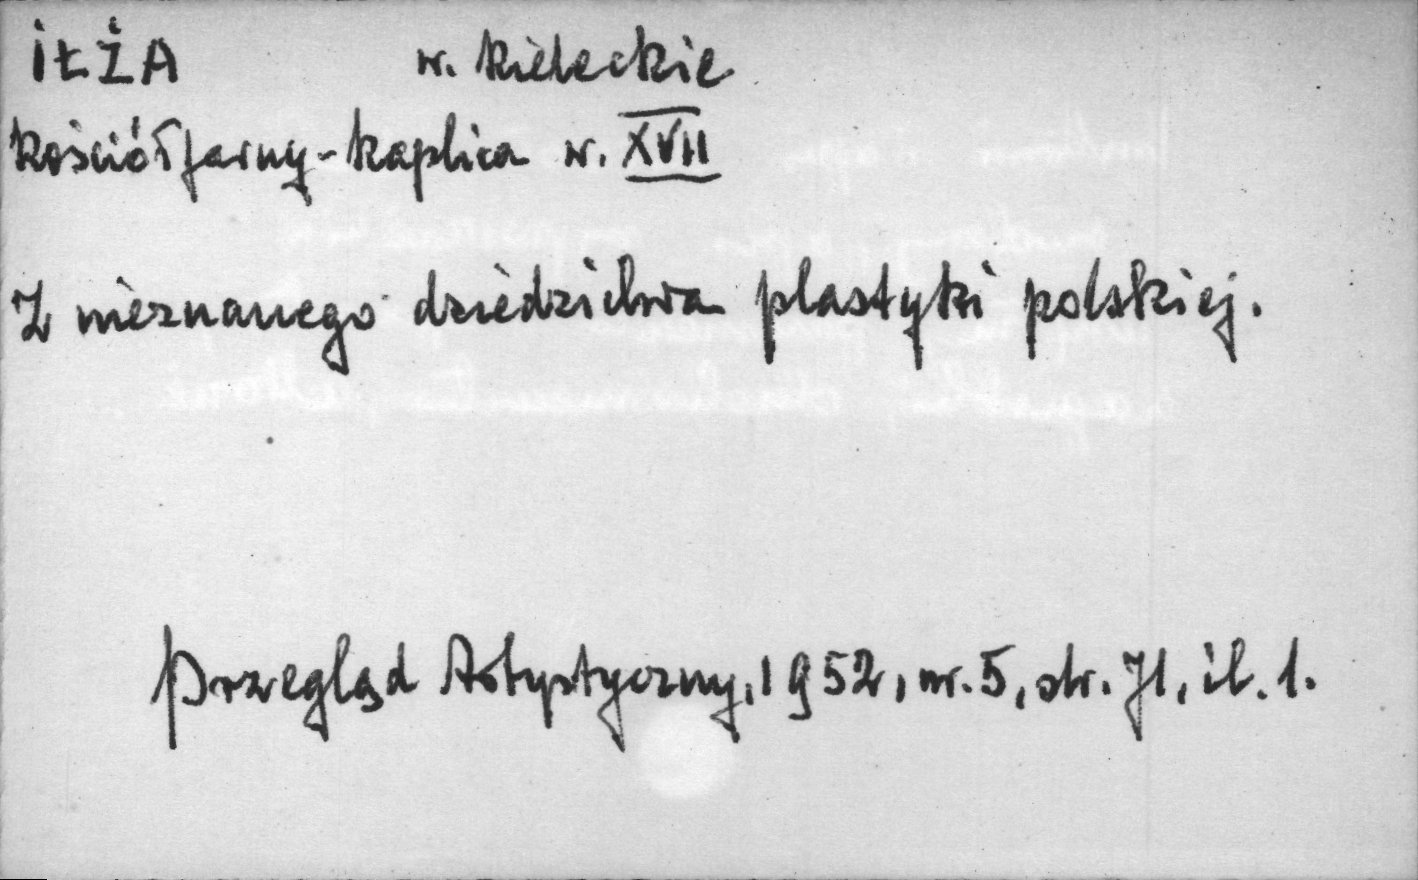 IŁŻA w. kieleckie
Kościół farny - kaplica w. XVII
Z nieznanego dziedzictwa plastyki polskiej.
Przegląd Artystyczny, 1952, nr. 5, str. 71, il. 1.